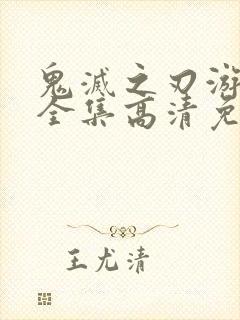 鬼滅之刃游
全集高清免
王尤清